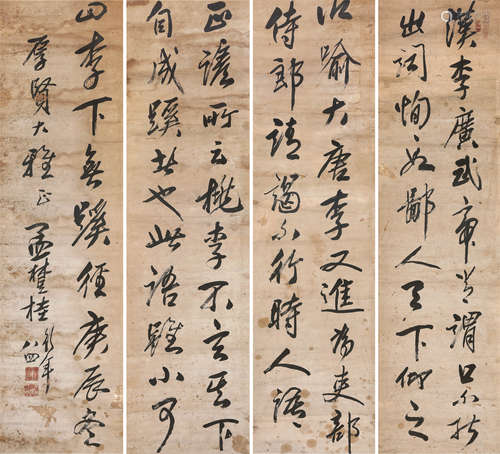 漢李廣武帝嘗謂口不能
出詞恂恂如鄙人天下仰之
以喻大唐李乂進為吏部
侍郎請謁不行時人語
正諺所云桃李不言其下
自成蹊者也此語雖小可
曰李下無蹊徑庚辰冬
厚賢大雅正
孟桂
年八四